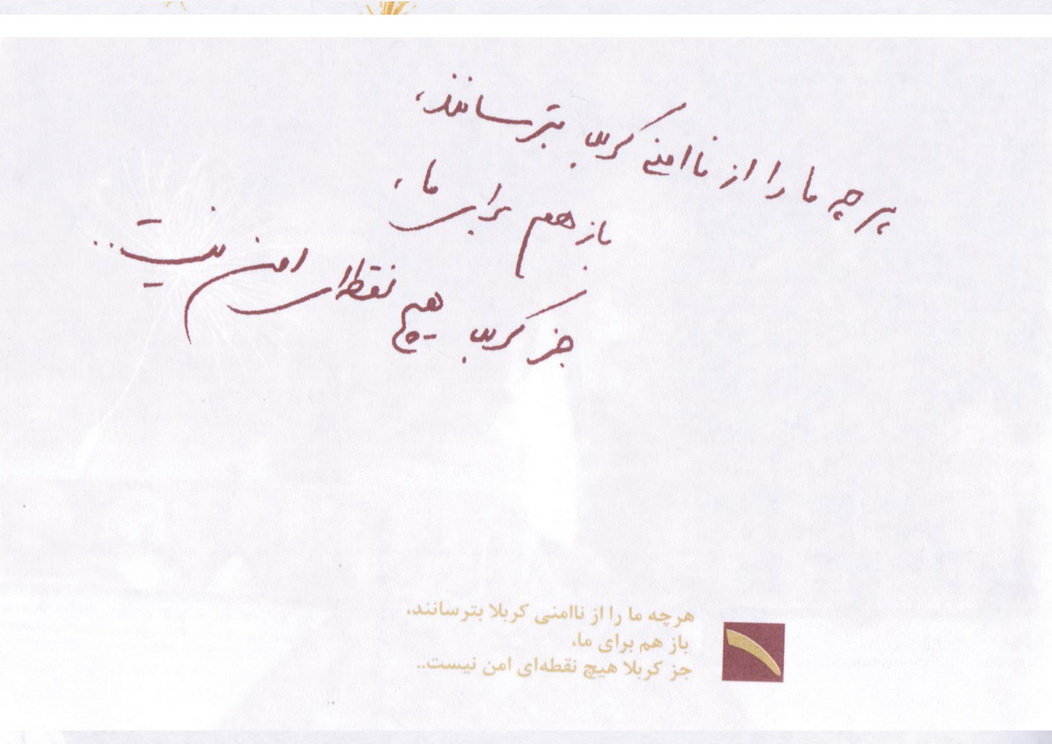 هر چه ما را از ناامنی کربلا بترسانند،
باز هم برای ما،
جز کربلا هیچ نقطه‌ای امن نیست..
هرچه ما را از ناامنی کربلا بترسانند،
باز هم برای ما،
جز کربلا هیچ نقطه‌ای امن نیست..